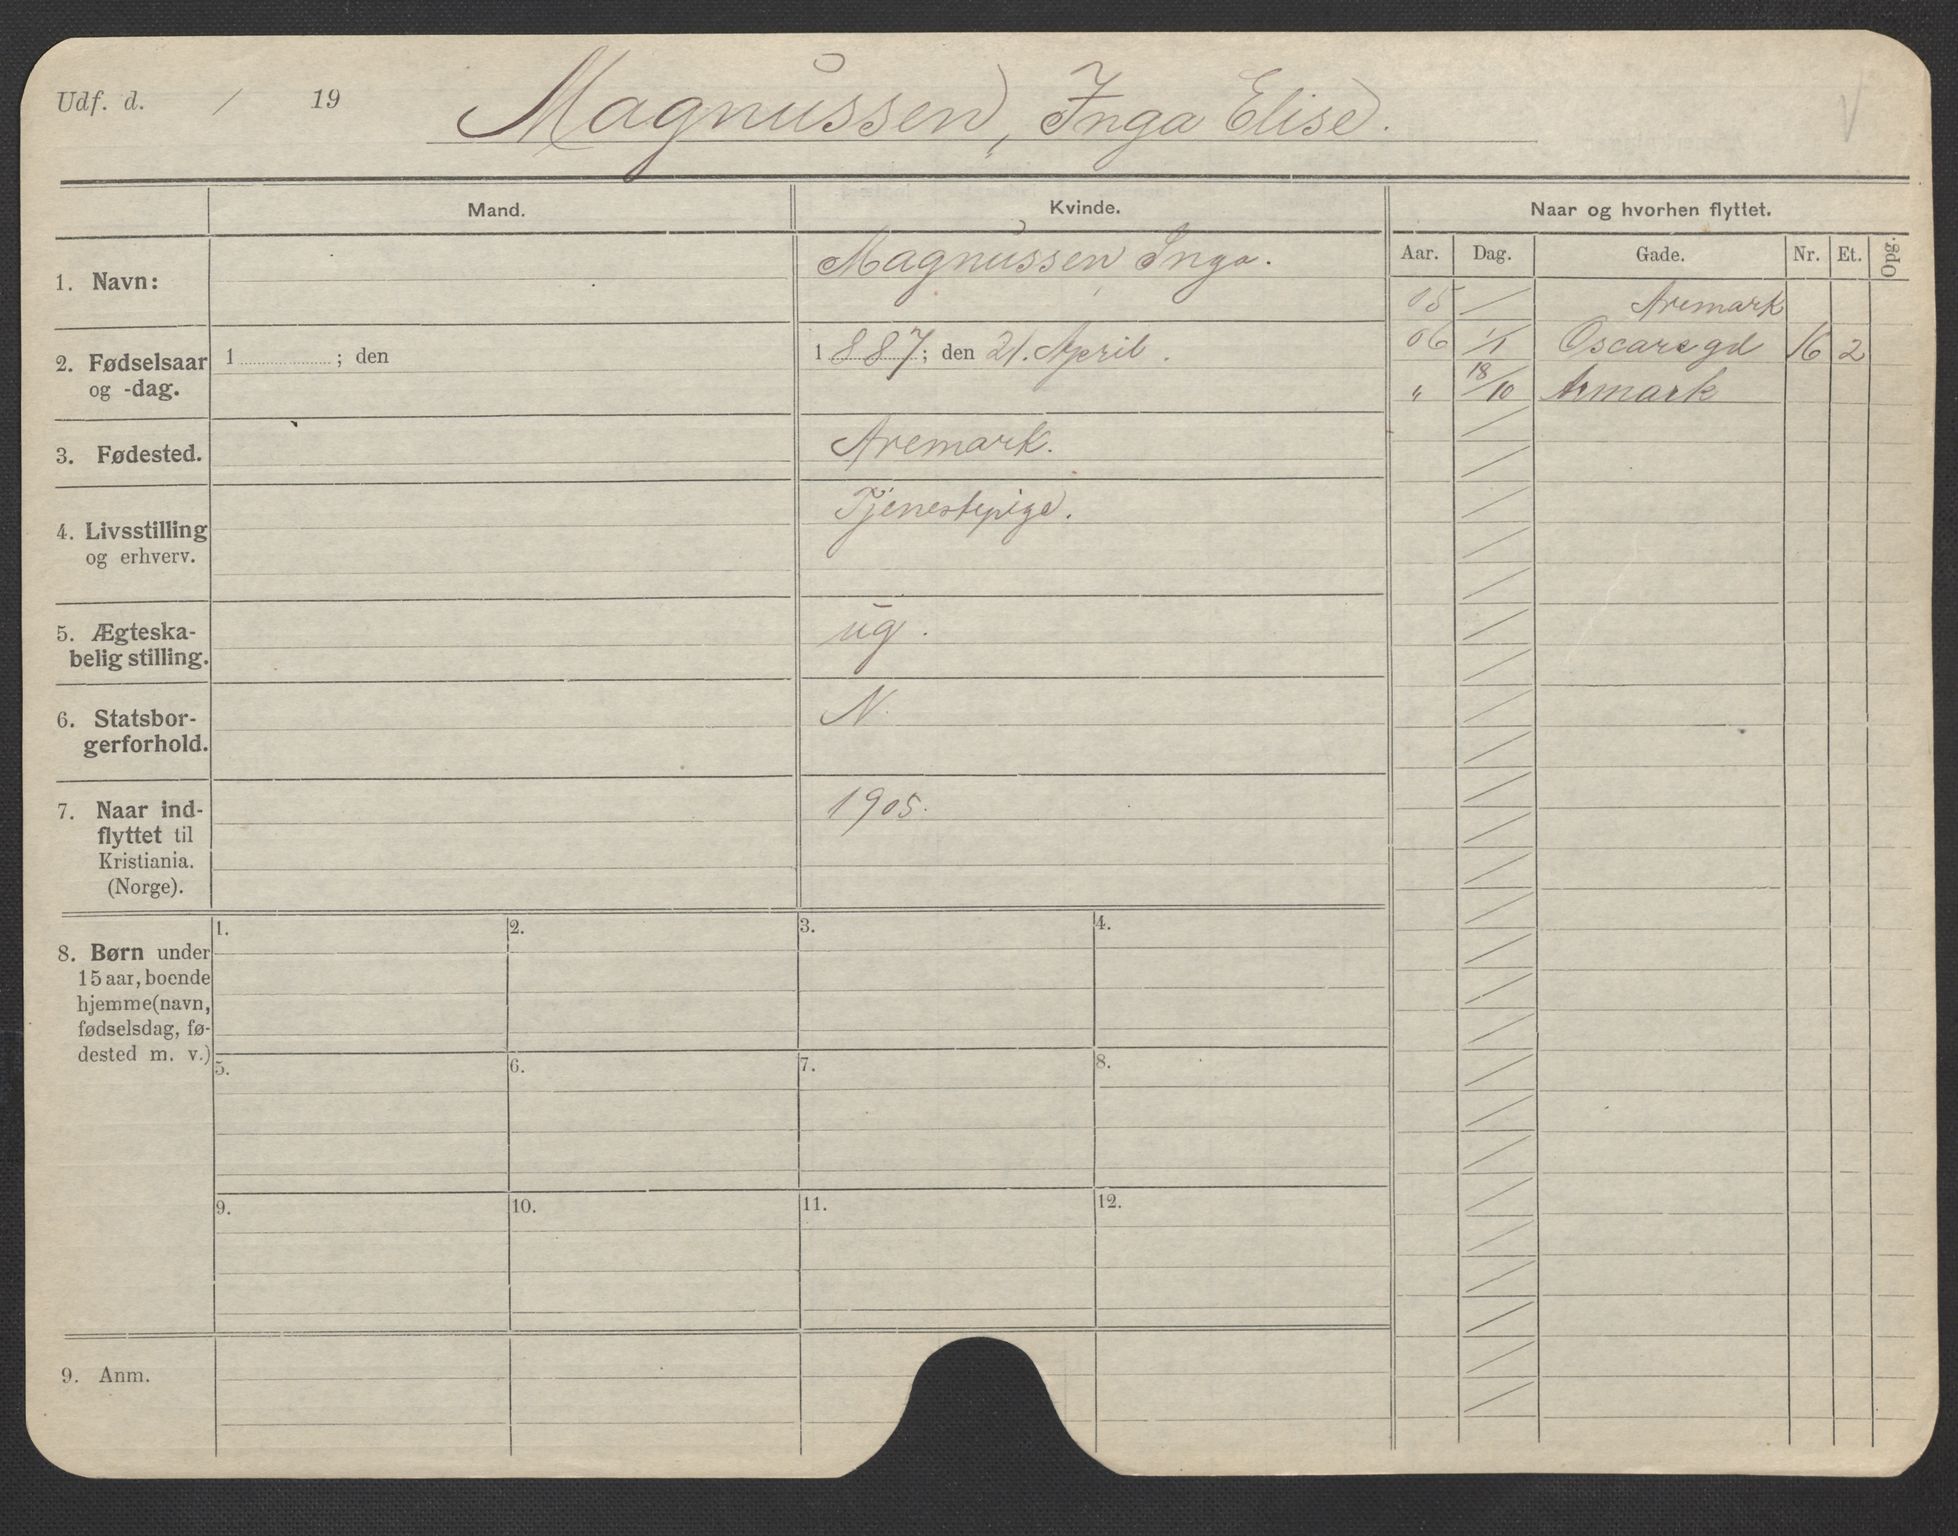 Udf. d. / 19 Magnussen, Inga Elise.
Mand. Kvinde. Naar og hvorhen flyttet.
Aar. Dag. Gade. Nr. Et. Opg.
1. Navn: Magnussen, Inga.
05 / Aremark
06 1/1 Oscarsgd 16 2
" 18/10 Armark
2. Fødselsaar
og -dag.
1 ; den
1887; den 21. April.
3. Fødested. Aremark.
4. Livsstilling
og erhverv.
Tjenestepige.
5. Ægteska-
belig stilling.
ug.
6. Statsbor-
gerforhold.
N.
7. Naar ind-
flyttet til
Kristiania.
(Norge).
1905.
8. Børn under
15 aar, boende
hjemme (navn,
fødselsdag, fø-
dested m. v.)
1. 2. 3. 4.
5. 6. 7. 8.
9. 10. 11. 12.
9. Anm.